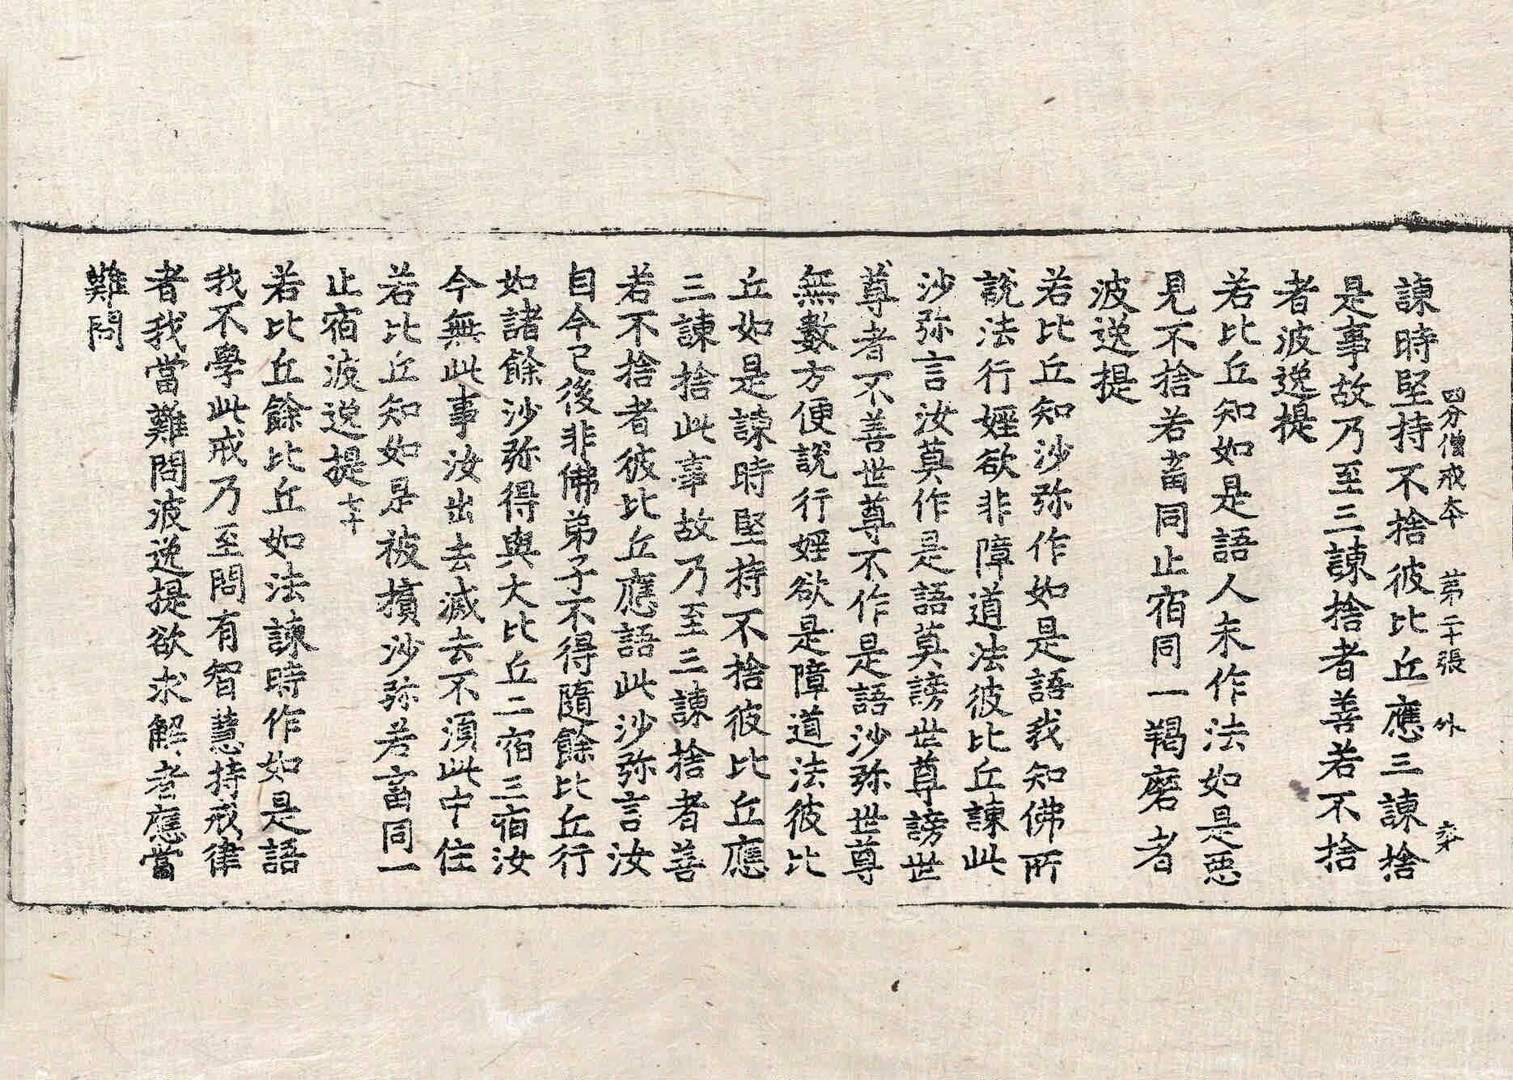 四分僧戒本 第二十張 外
諫時堅持不捨彼比丘應三諫捨
是事故乃至三諫捨者善若不捨
者波逸提
若比丘知如是語人未作法如是惡
見不捨若畜同止宿同一羯磨者
波逸提
若比丘知沙弥作如是語我知佛所
說法行婬欲非障道法彼比丘諫此
沙弥言汝莫作是語莫謗世尊謗世
尊者不善世尊不作是語沙弥世尊
無數方便說行婬欲是障道法彼比
丘如是諫時堅持不捨彼比丘應
三諫捨此事故乃至三諫捨者善
若不捨者彼比丘應語此沙弥言汝
自今已後非佛弟子不得隨餘比丘行
如諸餘沙弥得與大比丘二宿三宿汝
今無此事汝出去滅去不須此中住
若比丘知如是被擯沙弥若畜同一
止宿波逸提七十
若比丘餘比丘如法諫時作如是語
我不學此戒乃至問有智慧持戒律
者我當難問波逸提欲求解者應當
難問